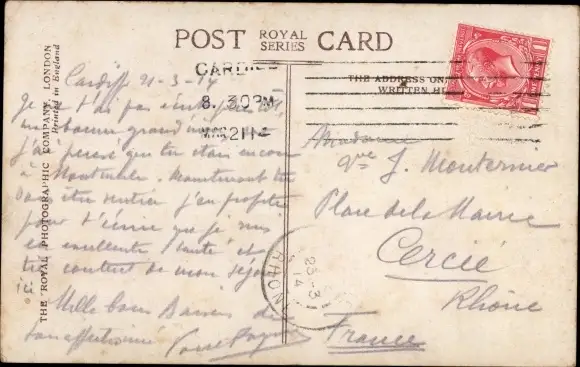 POST ROYAL SERIES CARD
THE ROYAL PHOTOGRAPHIC COMPANY, LONDON
Printed in England
THE ADDRESS ON
WRITTEN HE
CARDIFF
8. 30 PM
MR 21 14
Cardiff 21-3-14
Je ne t'ai pas écrit plus tôt,
ma bonne grand
j'ai pensé que tu étais encore
à Maintenant tu
dois être rentrée j'en profite
pour t'écrire que je suis
en excellente santé et
très content de mon séjour
ici
Mille bons Baisers de
ton affectionné
Madame
Vve J. Monternier
Place de la Mairie
Cercié
Rhône
France
23-3
14
RHONE